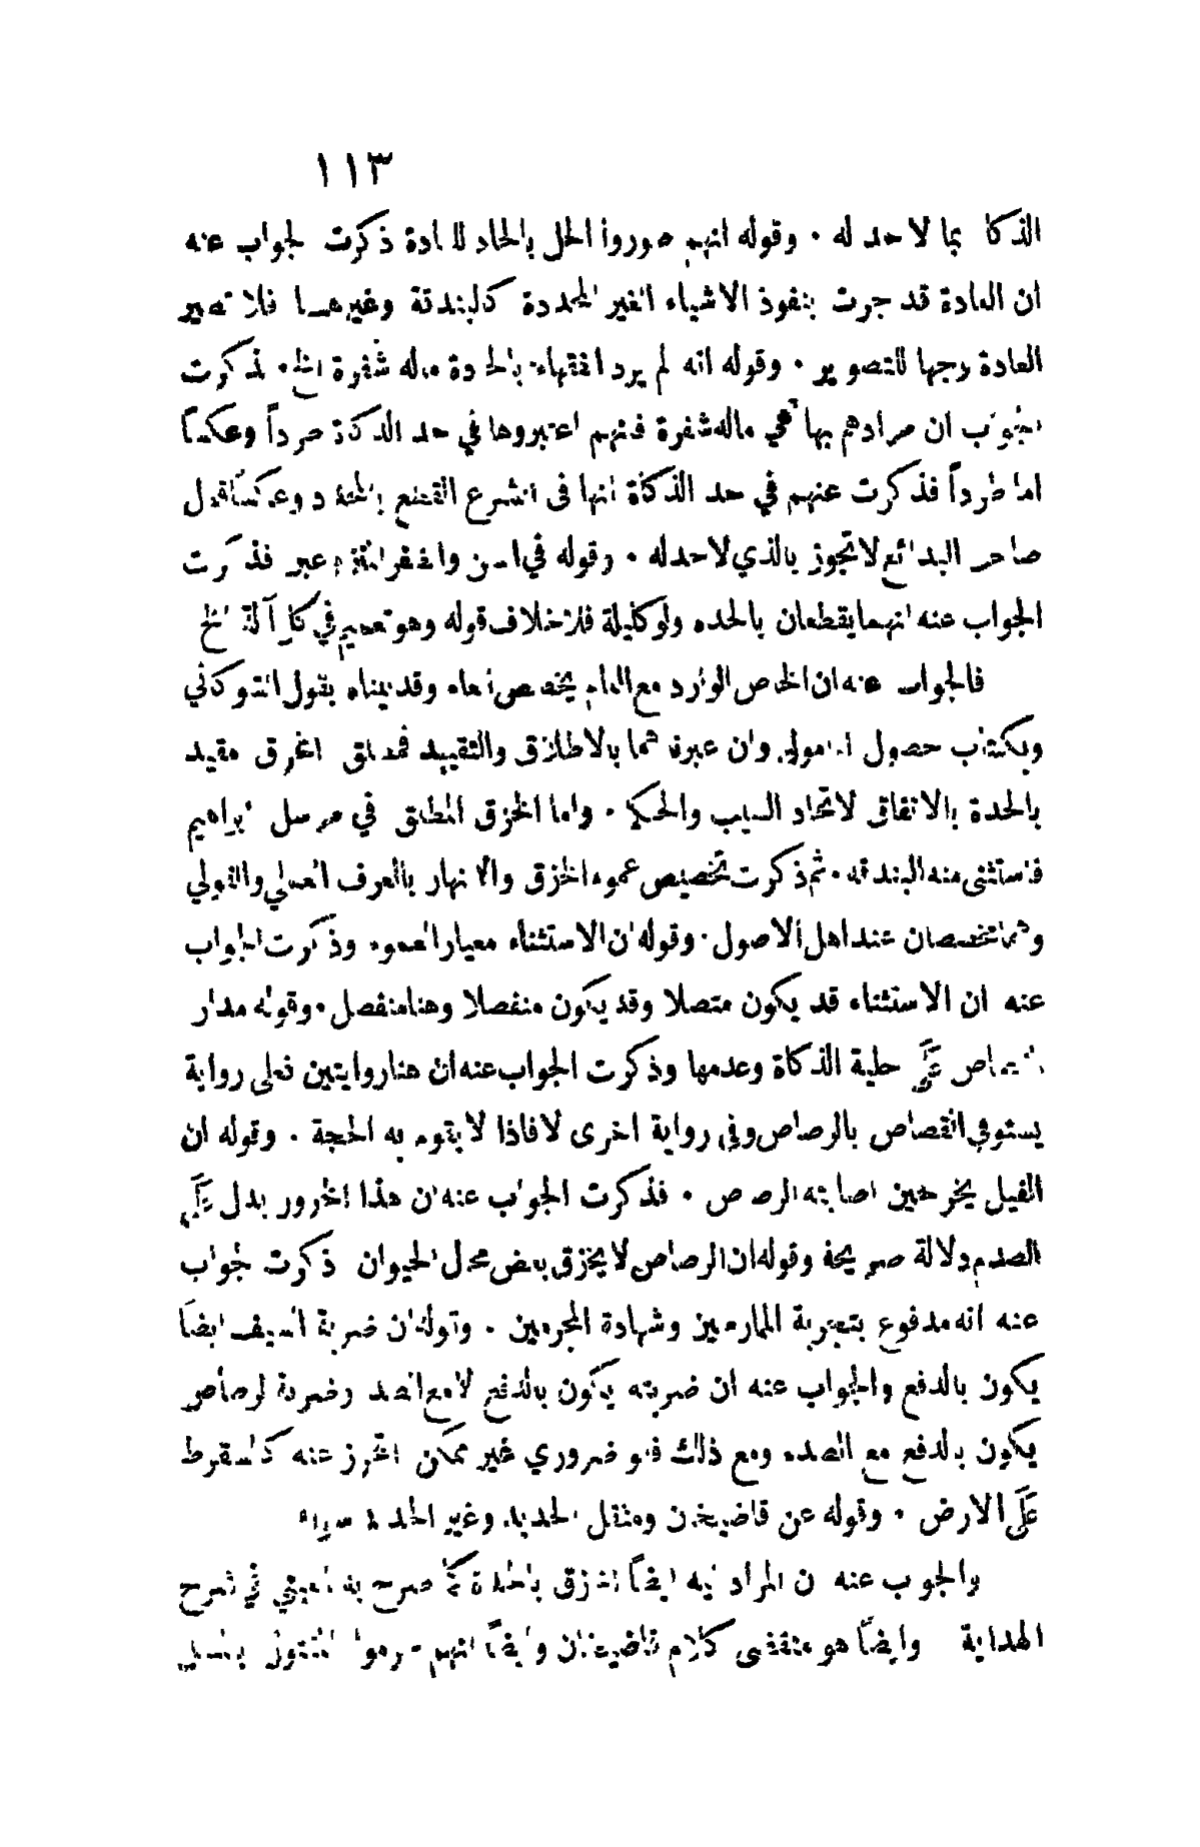 ١١٣
الذكا بما لا حد له . وقوله انهم صوروا الحل بالحاد للعادة ذكرت لجواب عنه
ان العادة قد جرت بنفوذ الاشياء الغير المحددة كالبندقة وغيرهما فلا تصير
العادة وجها للتصوير . وقوله انه لم يرد الفقهاء بالحادة ماله شفرة الخ . فذكرت
الجواب ان مرادهم بها هي ماله شفرة فانهم اعتبروها في حد الذكاة طرداً وعكساً
اما طرداً فذكرت عنهم في حد الذكاة انها في الشرع القطع بالحدة وعكساً قول
صاحب البدائع لا تجوز بالذي لا حد له . وقوله في السن والظفر فذكرت
الجواب عنه انهما يقطعان بالحده ولو كليلة فلا خلاف قوله وهو تعميم في كل آلة الخ
فالجواب عنه ان الخاص الوارد مع العام يخصص العام وقد بيناه بقول الشوكاني
وبكتاب حصول المامول وان عبرنا عنهما بالاطلاق والتقييد فمطلق الخرق مقيد
بالحدة بالاتفاق لاتحاد السبب والحكم . واما الخزق المطلق في مرسل ابراهيم
فاستثنى منه البندقه . ثم ذكرت تخصيص عموم الخزق والانهار بالعرف العملي والقولي
وهما مخصصان عند اهل الاصول . وقوله ان الاستثناء معيار العموم وذكرت الجواب
عنه ان الاستثناء قد يكون متصلا وقد يكون منفصلا وهنا منفصل . وقوله مدار
القصاص على حلية الذكاة وعدمها وذكرت الجواب عنه ان هنا روايتين فعلى رواية
يستوفي القصاص بالرصاص وفي رواية اخرى لا فاذا لا يقوم به الحجة . وقوله ان
الفيل يخر حين اصابته الرصاص . فذكرت الجواب عنه ان هذا الخرور يدل على
الصدم دلالة صريحة وقوله ان الرصاص لا يخزق بعض محل الحيوان ذكرت لجواب
عنه انه مدفوع بتجربة الممارسين وشهادة المجربين . وقوله ان ضربة السيف ايضا
يكون بالدفع والجواب عنه ان ضربته يكون بالدفع لا مع الصدم وضربة الرصاص
يكون بالدفع مع الصدم ومع ذلك فهو ضروري غير ممكن التحرز عنه كالسقوط
على الارض . وقوله عن قاضيخان ومثقل الحديد وغير الحديد سواء
والجواب عنه ان المراد فيه ايضاً الخزق بالحدة كما صرح به العيني في شرح
الهداية وايضاً هو مقتضى كلام قاضيخان وايضاً انهم